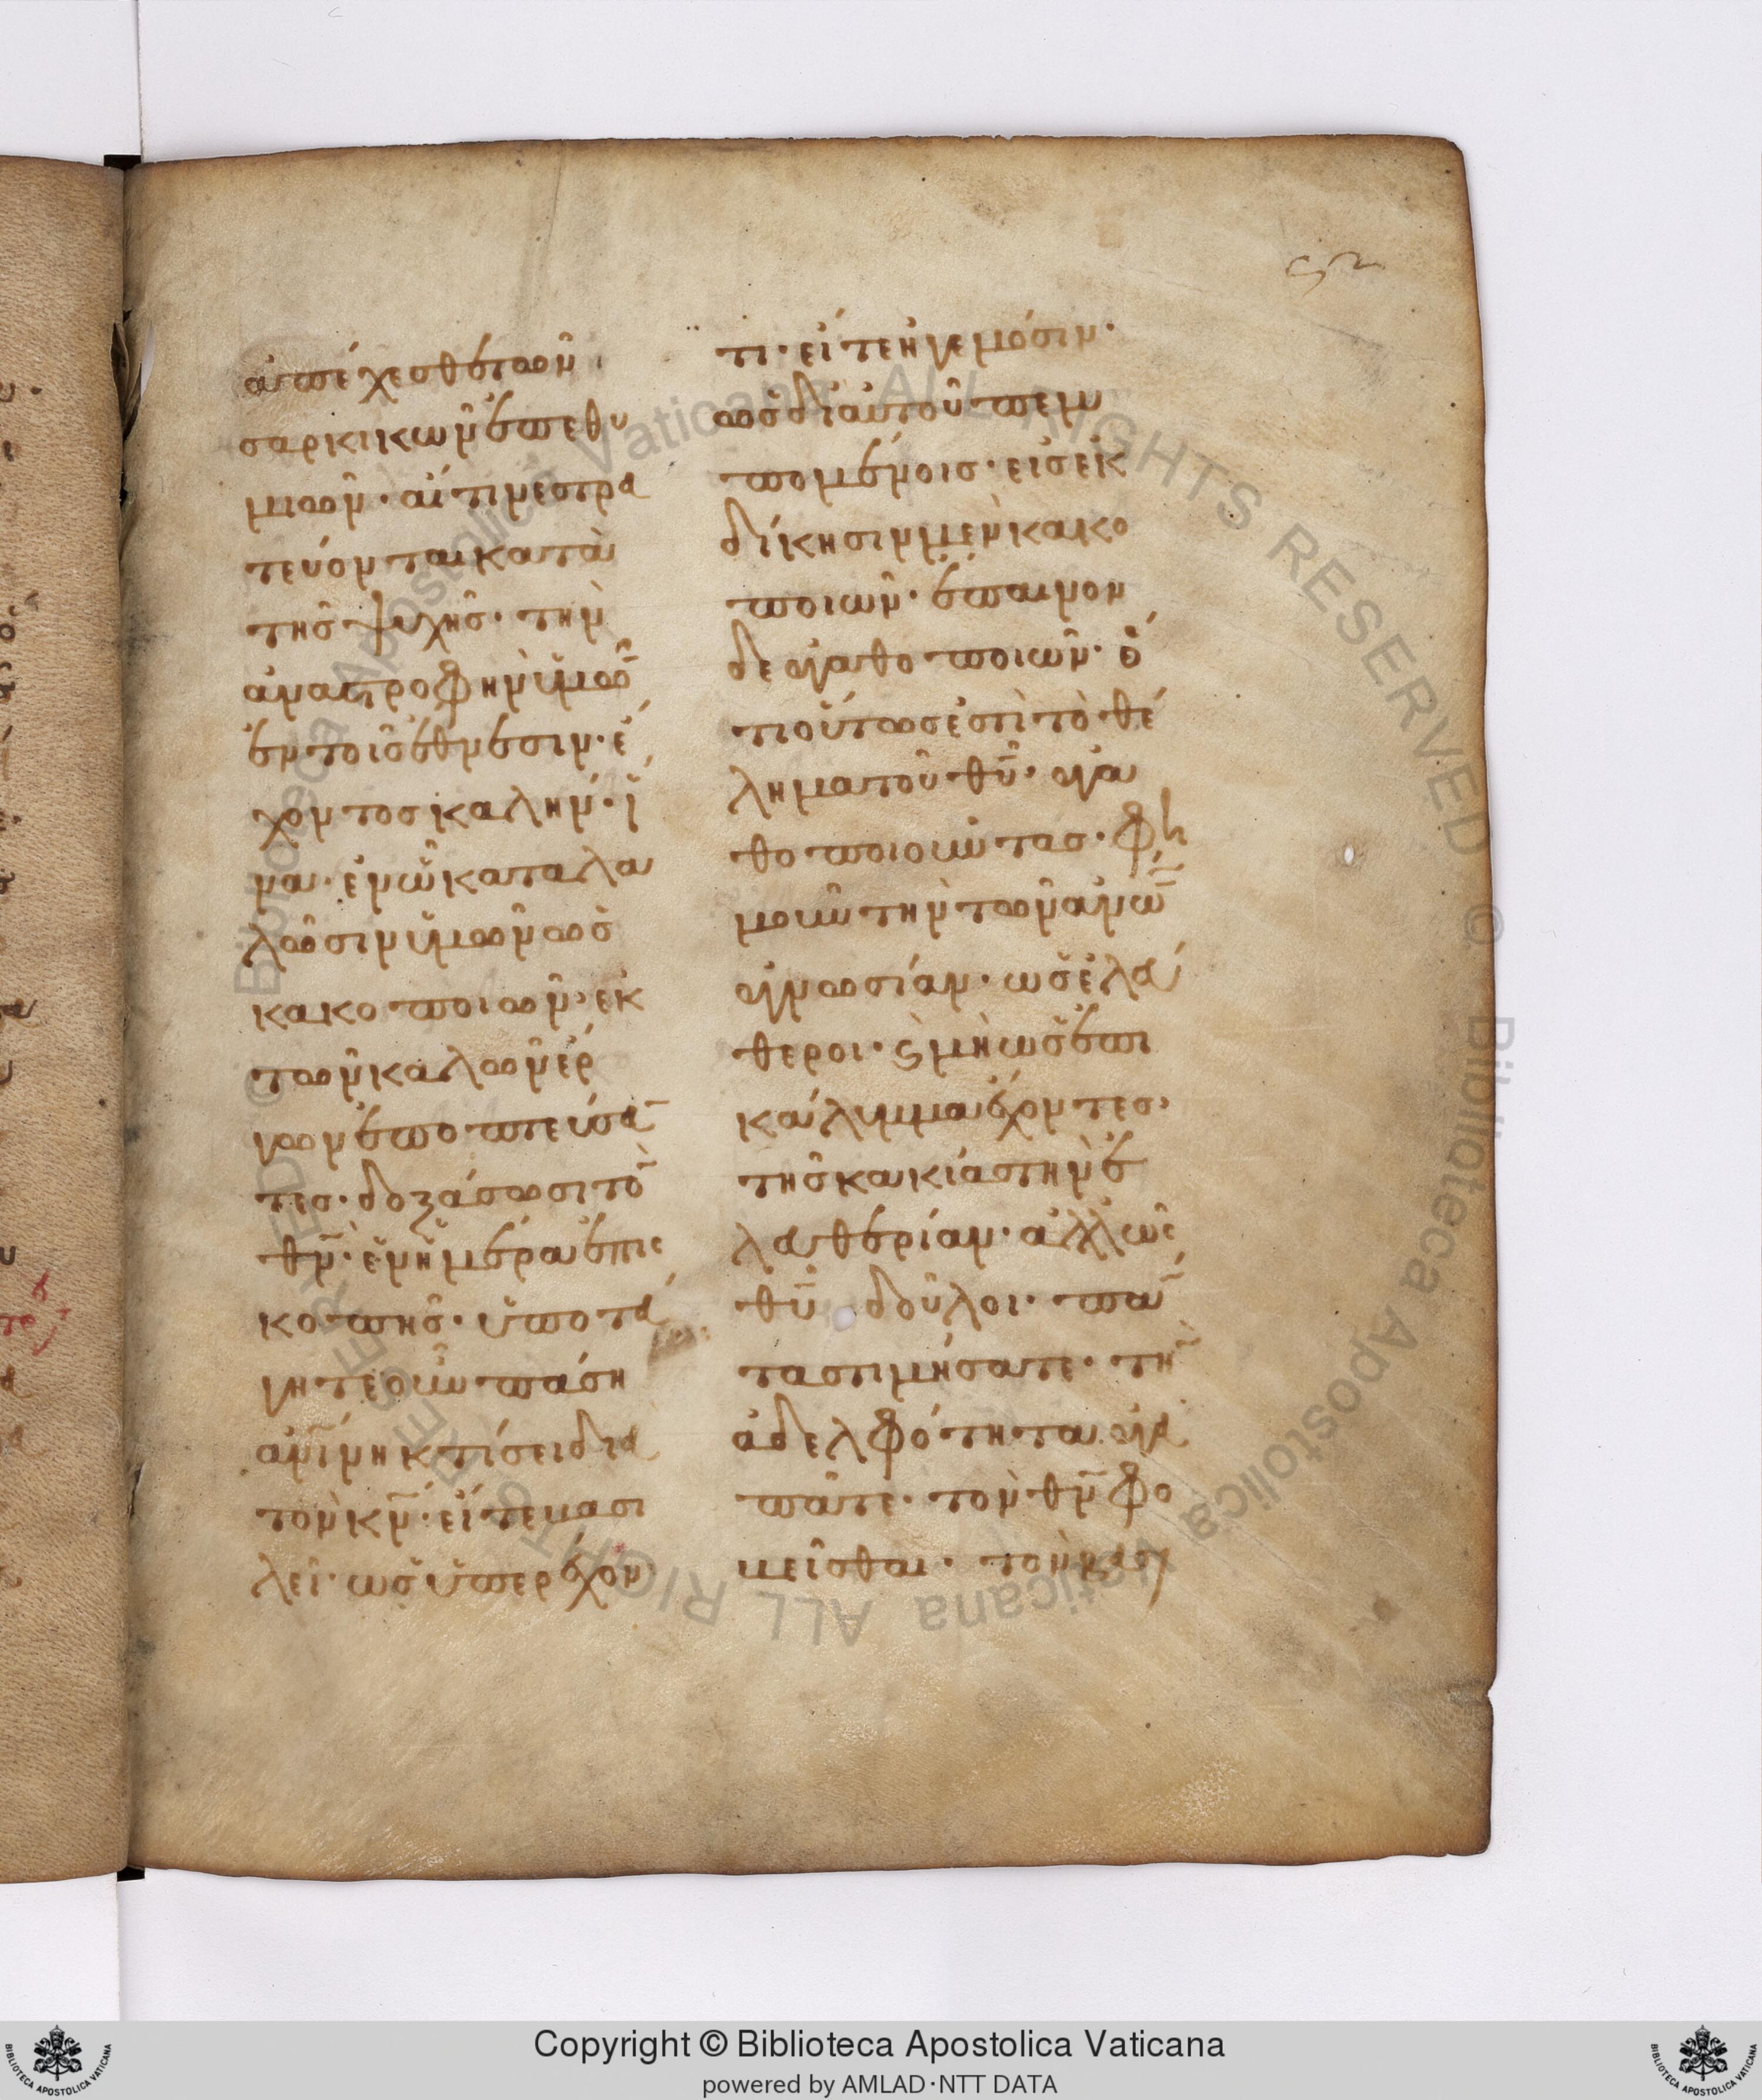 ἀπέχεσθε τῶν
σαρκικῶν ἐπεθυ
μιῶν· αἵτινες στρα
τεύονται κατὰ
τῆς ψυχῆς· τὴν
ἀναστροφὴν ὑμῶ̅
ἐν τοῖς ἔθνεσιν· ἔ
χοντος καλήν· ἵ
να· ἐν ᾧ καταλα
λῶσιν ὑμῶν ὡς
κακοποιῶν· ἐκ
τῶν καλῶν ἔρ
γων ἐποπτεύσα̅
τες· δοξάσωσι τὸ̅
θν̅· ἐν ἡμέρα ἐπισ
κοπῆς· ὑποτά
γητε οὖν πάση
ἀν̅ίνη κτίσει διὰ
τὸν κν̅· εἴτε βασι
λεῖ· ὡς ὑπερέχον
τι· εἴτε ἡγεμόσιν·
ὡς δι αὐτοῦ πεμ
πομένοις· εἰς ἐκ
δίκησιν μὲν κακο
ποιῶν· ἔπαινον
δε ἀγαθοποιῶν· ὅ
τι οὕτως ἐστὶ τὸ θέ
λημα τοῦ θυ̅· ἀγα
θοποιοῦντας· φη
μοῦν τὴν τῶν ἀν̅ω̅
ἀγνωσίαν· ὡς ἐλεύ
θεροι· ϛ μὴ ὡς ἐπι
κάλυμμα ἔχοντες·
τῆς κακίας τὴν ἐ
λευθερίαν· ἀλλ ὡς
θυ̅ δοῦλοι· πάν̅
τας τιμήσατε· τὴ̅
ἀδελφότητα ἀγα
πᾶτε· τὸν θν̅ φο
βεῖσθαι· τὸν βασι
ϛ2
Copyright © Biblioteca Apostolica Vaticana
powered by AMLAD·NTT DATA